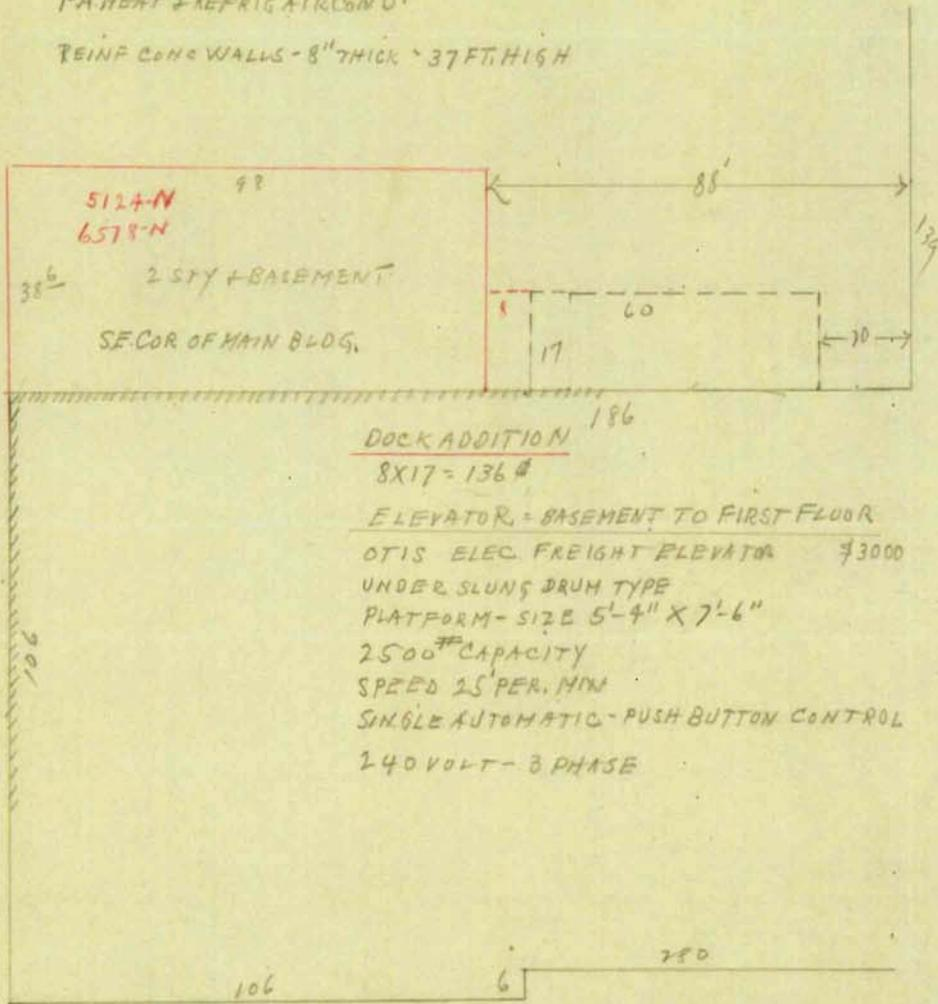 FA HEAT & REFRIG AIRCOND.
REINF CONC WALLS - 8" THICK - 37 FT. HIGH
98
88'
5124-N
6578-N
139
38 6
2 STY + BASEMENT
60
SE. COR OF MAIN BLDG.
17
186
DOCK ADDITION
8X17 = 136
ELEVATOR = BASEMENT TO FIRST FLOOR
OTIS ELEC FREIGHT ELEVATOR $3000
UNDER SLUNG DRUM TYPE
PLATFORM - SIZE 5'-4" X 7'-6"
2500# CAPACITY
SPEED 25' PER. MIN
SINGLE AUTOMATIC - PUSH BUTTON CONTROL
240 VOLT - 3 PHASE
280
106
6